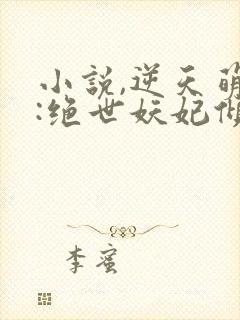 小説,逆天萌
:绝世妖妃倾
李蜜